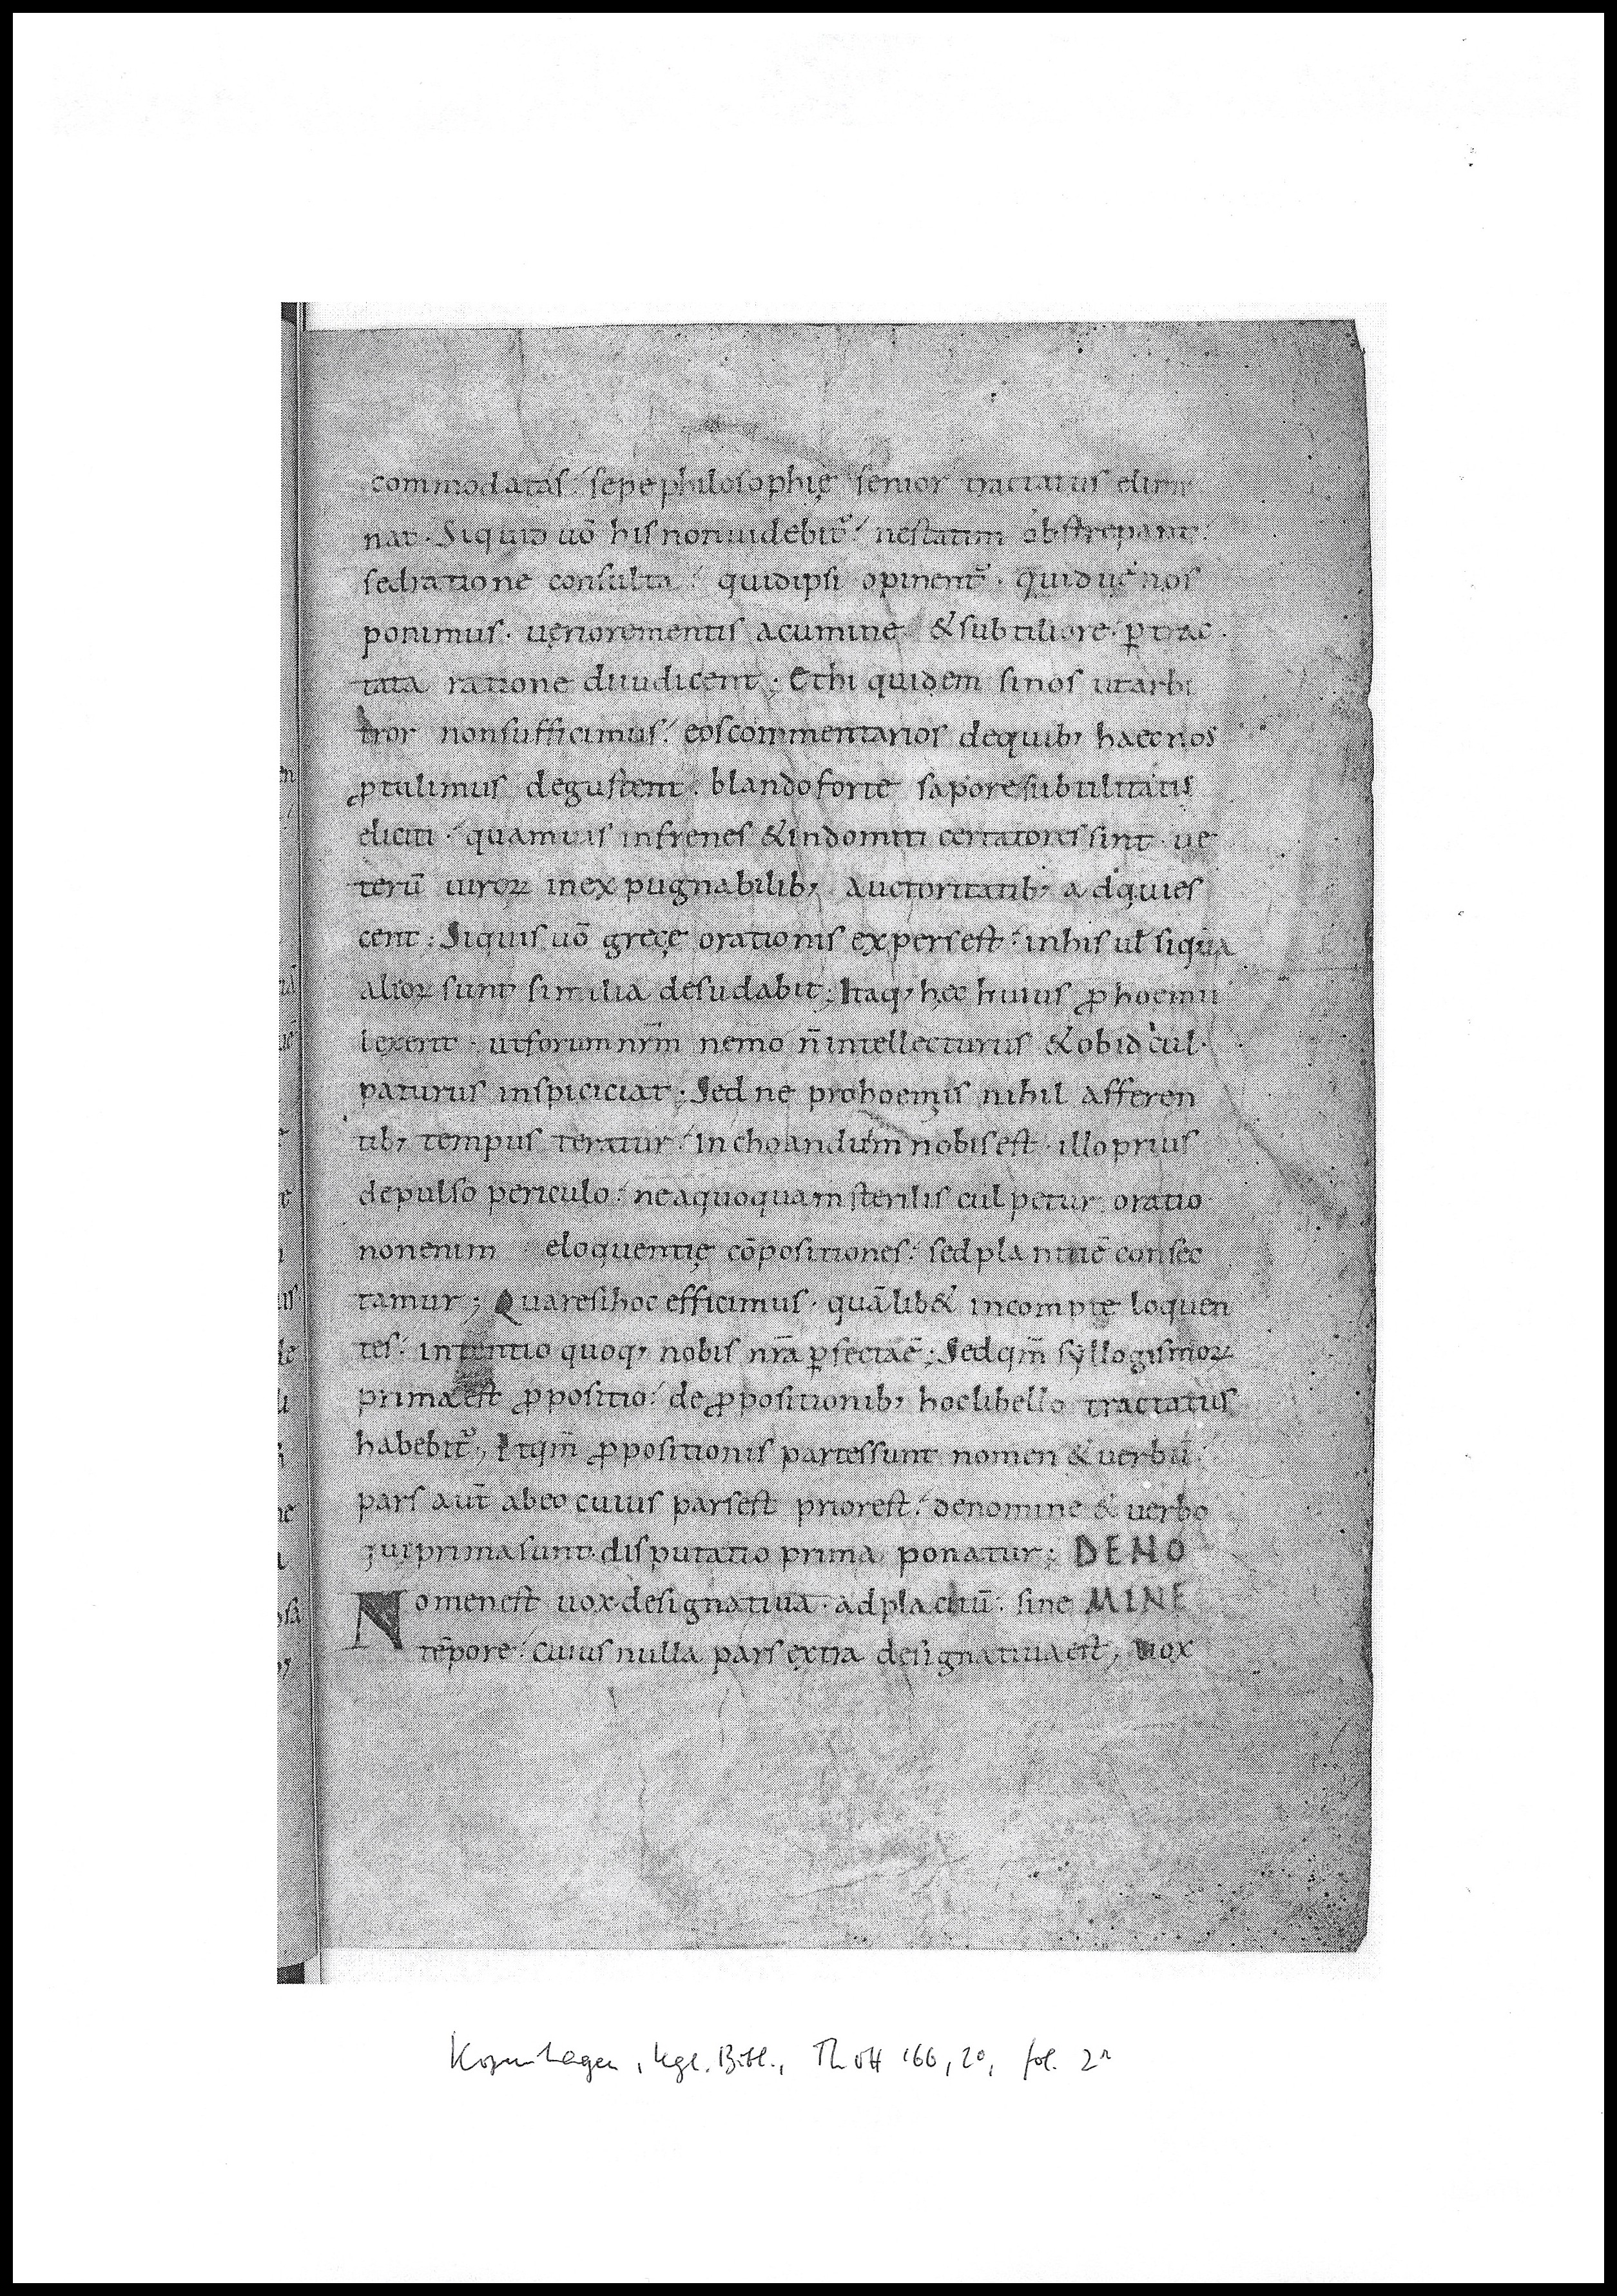 commodatas. sepe philosophię senior tractatus elimi
nat. Siquid uō his non uidebit᷑. ne statim obstrepant.
sed ratione consulta. quid ipsi opinent᷑. quid uę nos
ponimus. uęriore mentis acumine & subtiliore ꝑtrac
tata ratione diiudicent; Et hi quidem si nos ut arbi
tror non sufficimus. eos commentarios de quib; haec nos
ꝓtulimus degustent. blando forte sapore subtilitatis
eliciti. quamuis infrenes & indomiti certatores sint ue
terū uiroꝝ inexpugnabilib; auctoritatib; adquies
cent; Siquis uō gręcę orationis expers est. in his uł siqua
alioꝝ sunt similia desudabit; Itaq; hęc huius ꝓhoemii
lex erit. ut forum nr̄m nemo n̄ intellecturus & ob id cul
paturus inspiciciat; Sed ne prohoemiis nihil afferen
tib; tempus teratur. Inchoandum nobis est. illo prius
depulso periculo. ne a quoquam sterilis culpetur oratio
non enim eloquentię cōpositiones. sed planitiē consec
tamur; Quare si hoc efficimus. quālib& incompte loquen
tes. intentio quoq; nobis nr̄a ꝑfecta ē; Sed qm̄ syllogismoꝝ
prima est ꝓpositio. de ꝓpositionib; hoc libello tractatus
habebit᷑; Et qm̄ ꝓpositionis partes sunt nomen & uerbū.
pars aut̄ ab eo cuius pars est prior est. de nomine & uerbo
quę prima sunt. disputatio prima ponatur; DE NO
Nomen est uox designatiua. ad placitū. sine MINE
tēpore. cuius nulla pars extra designatiua est; Uox
Kopenhagen, kgl. Bibl., Thott 166, 2°, fol. 2r